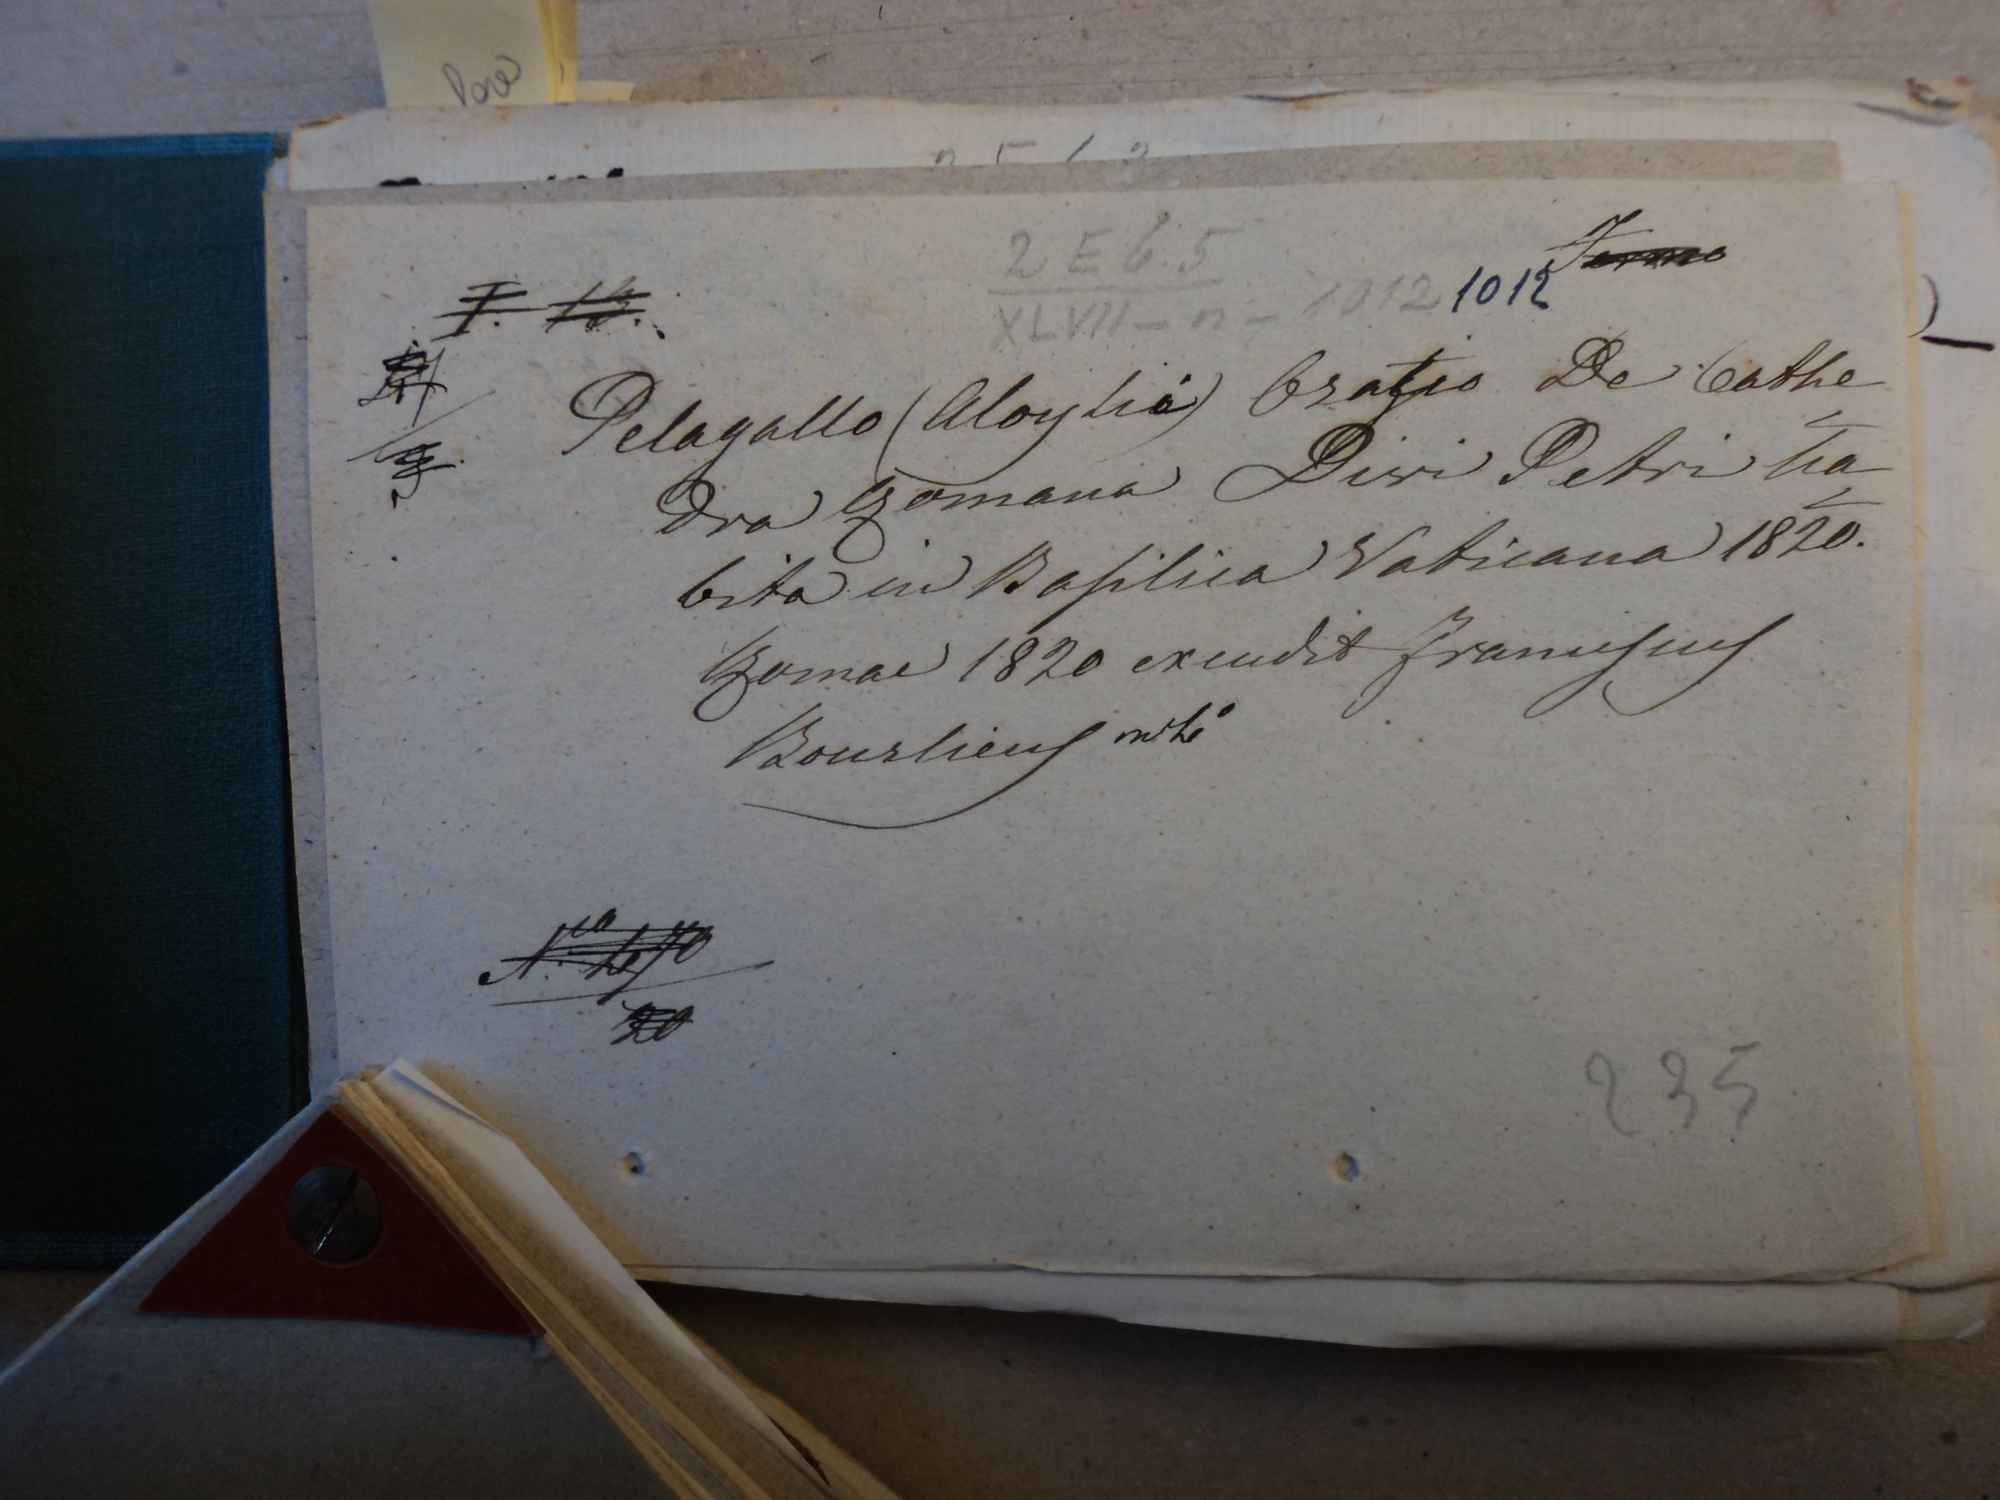 2 E 6.5
XLVII - n - 1012 1012 Fermo
Pelagallo (Aloysio) Oratio De Cathe
dra Romana Divi Petri ha
bita in Basilica Vaticana 1820.
Romae 1820 excudit Franciscus
Bourlieus
235